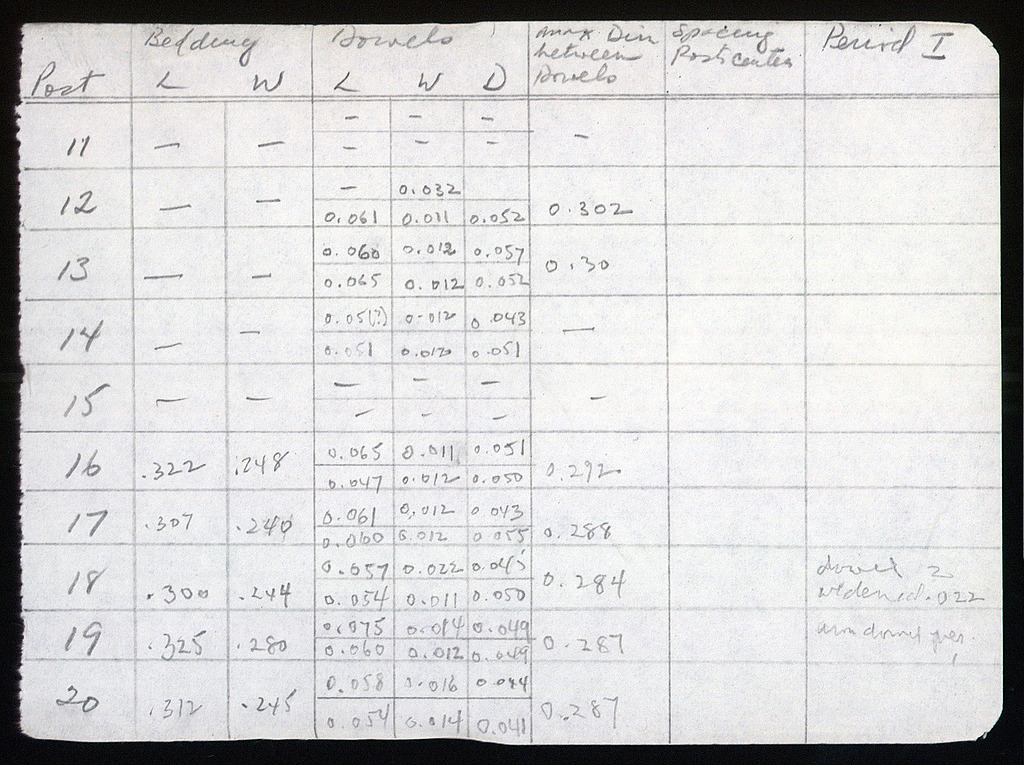 Bedding Dowels Max Dim Spacing Period I
between Post centers
Post L W L W D Dowels
- - -
11 - - - - - -
- 0.032
12 - - 0.061 0.011 0.052 0.302
0.060 0.012 0.057
13 - - 0.065 0.012 0.052 0.30
0.05(?) 0.012 0.043
14 - - 0.051 0.012 0.051 -
- - -
15 - - - - - -
0.065 0.011 0.051
16 .322 .248 0.047 0.012 0.050 0.292
0.061 0.012 0.043
17 .307 .240 0.060 0.012 0.055 0.288
0.057 0.022 0.045 dowel 2
18 .300 .244 0.054 0.011 0.050 0.284 widened .022
0.075 0.014 0.049 dowel
19 .325 .280 0.060 0.012 0.049 0.287
0.058 0.016 0.044
20 .312 .245 0.054 0.014 0.041 0.287